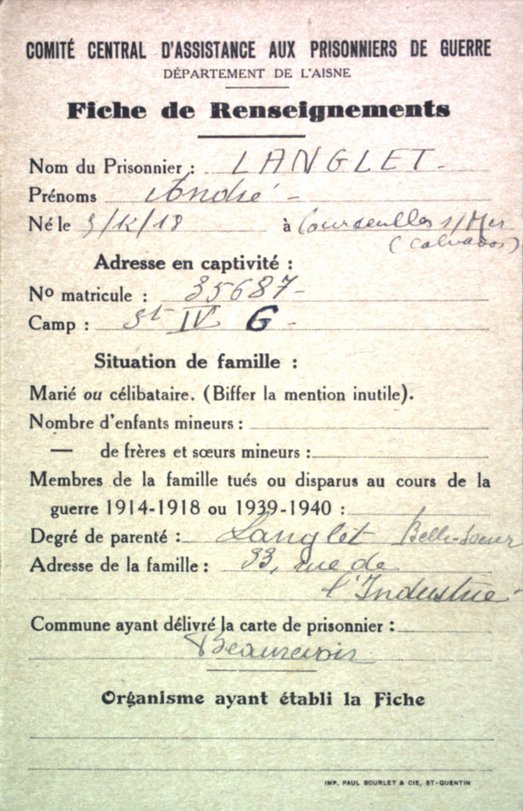 COMITÉ CENTRAL D'ASSISTANCE AUX PRISONNIERS DE GUERRE
DÉPARTEMENT DE L'AISNE
Fiche de Renseignements
Nom du Prisonnier : LANGLET
Prénoms André
Né le 3/12/18 à Courseulles s/Mer
(Calvados)
Adresse en captivité :
No matricule : 35687
Camp : St IV G
Situation de famille :
Marié ou célibataire. (Biffer la mention inutile).
Nombre d'enfants mineurs :
— de frères et sœurs mineurs :
Membres de la famille tués ou disparus au cours de la
guerre 1914-1918 ou 1939-1940 :
Degré de parenté : Langlet Belle-Soeur
Adresse de la famille : 33, rue de
l'Industrie
Commune ayant délivré la carte de prisonnier :
Beaurevoir
Organisme ayant établi la Fiche
IMP. PAUL BOURLET & CIE, ST-QUENTIN